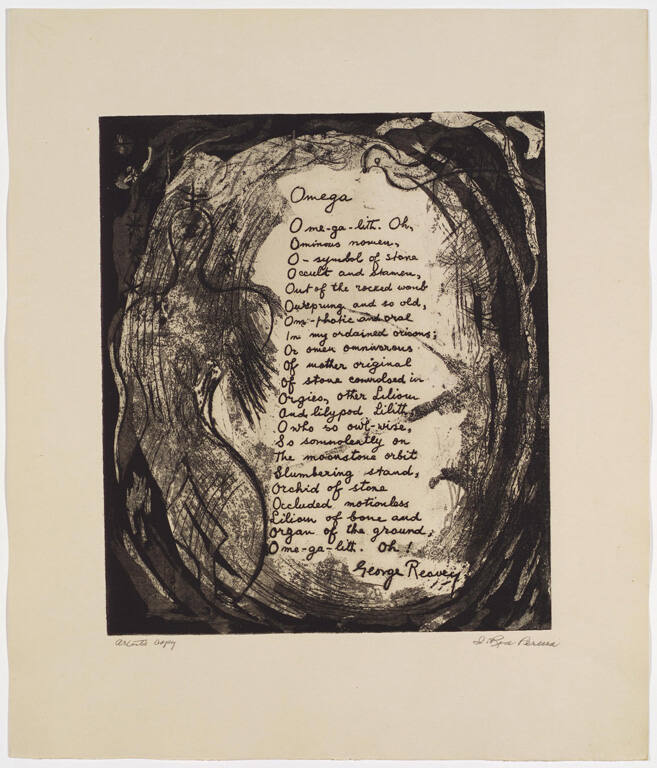 Omega
Ome-ga-lith. Oh,
Ominous nomen,
O-symbol of stone
Occult and stamen,
Out of the rocked womb
Outsprung and so old,
Om-phatic and oral
In my ordained orisons;
Or omen omnivorous
Of mother original
Of stone convolsed in
Orgies, other Lilion
And lilypod Lilith,
O who so owl-wise,
So somnolently on
The moonstone orbit
Slumbering stand,
Orchid of stone
Occluded motionless
Lilion of bone and
organ of the ground,
Ome-ga-lith. Oh!
George Reavey
Artist's Copy
I. Rice Pereira